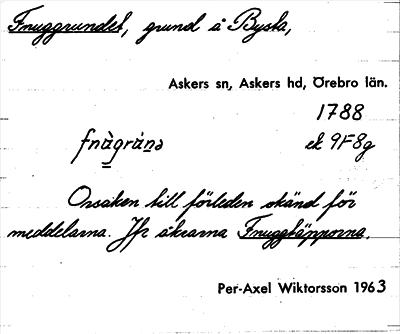 Fnuggrundet, grund å Bysta,
Askers sn, Askers hd, Örebro län.
1788
fnùgrùnə ek 9F8g
Orsaken till förleden okänd för
meddelarna. Jfr åkrarna Fnuggtäpporna.
Per-Axel Wiktorsson 1963